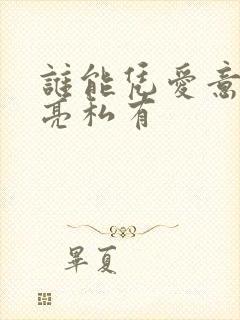 誰能凭愛意
亮私有
畢夏